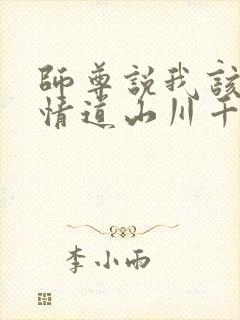 師尊說我該
情道山川千
李小雨